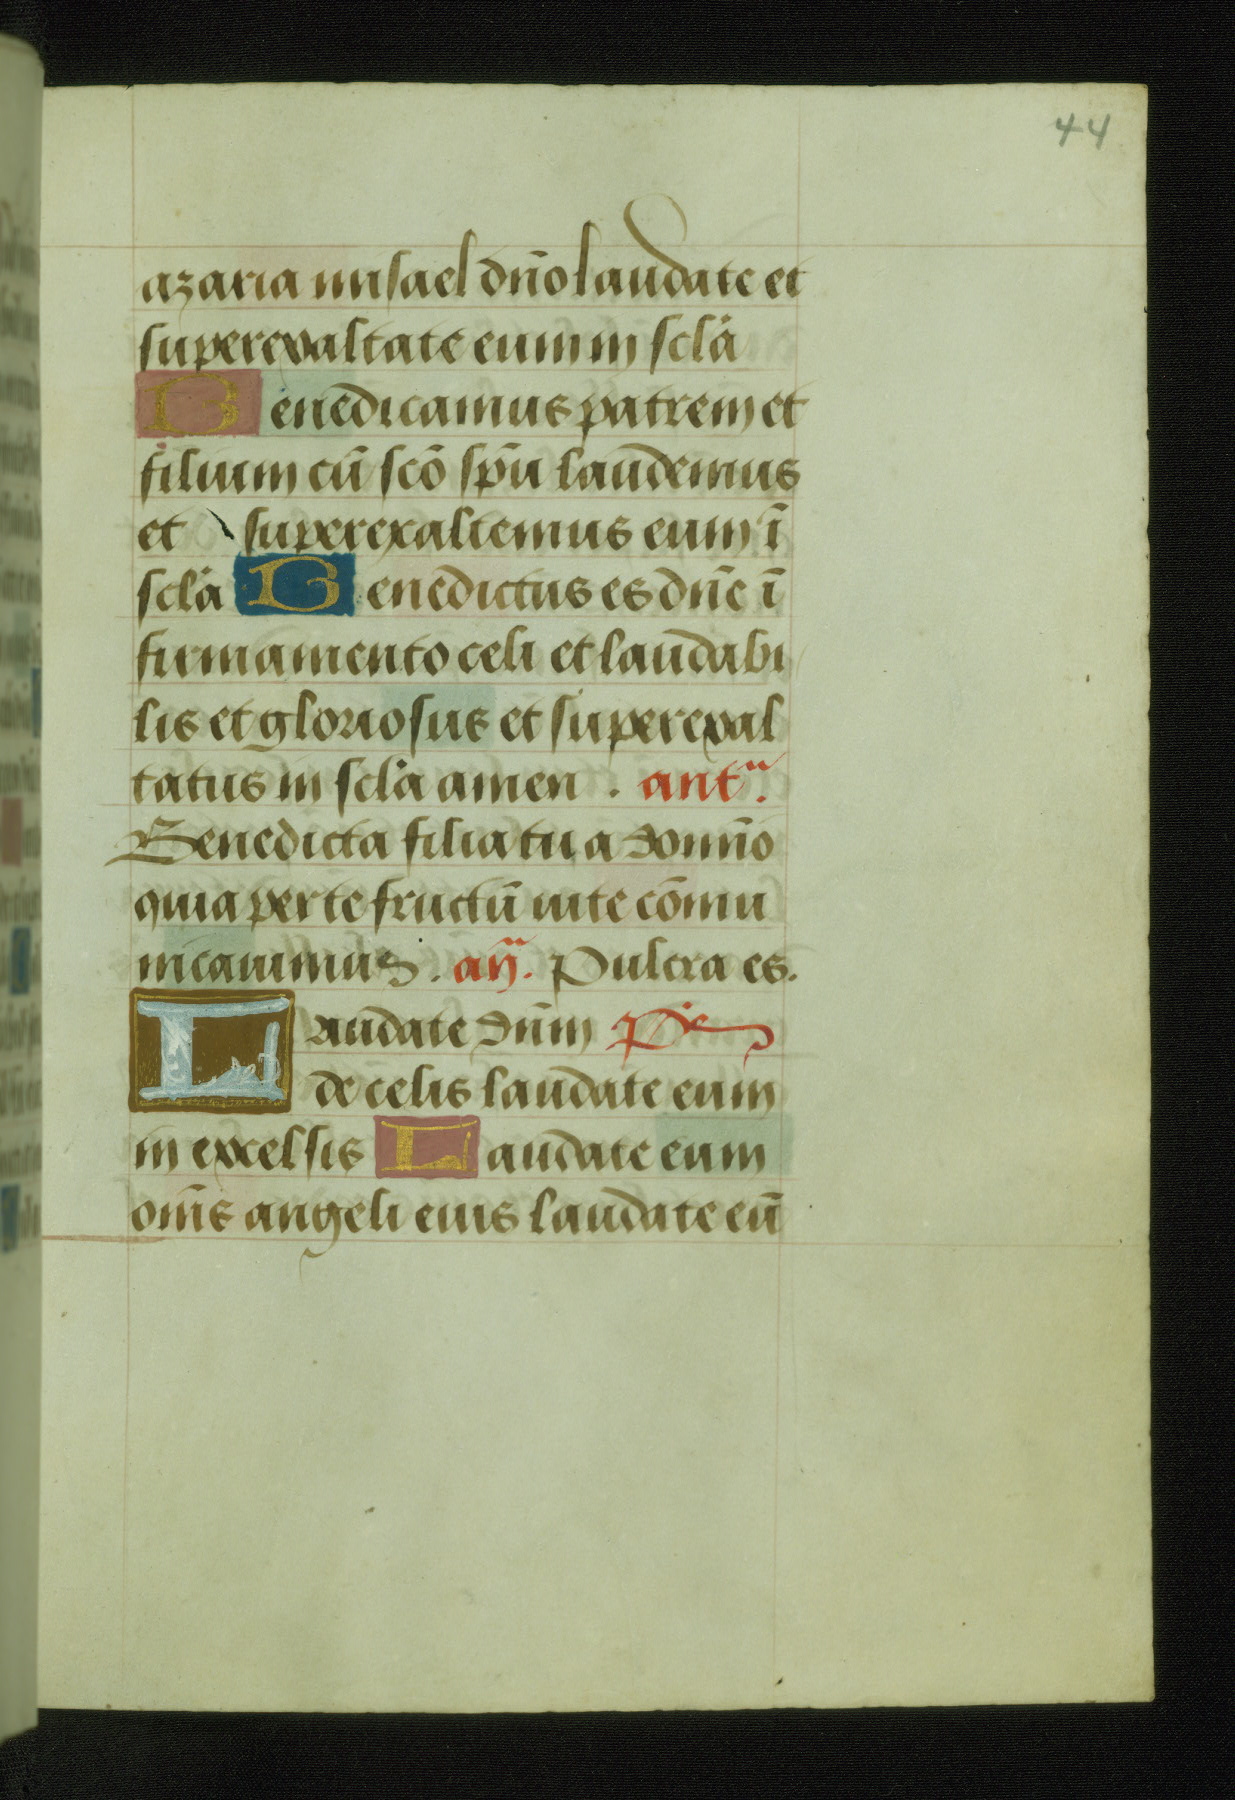 44
azaria misael dño laudate et
superexaltate eum in sclã
Benedicamus patrem et
filium cũ scõ spũ laudemus
et superexaltemus eum ĩ
sclã Benedictus es dñe ĩ
firmamento celi et laudabi
lis et gloriosus et superexal
tatus in sclã amen . ant.
Benedicta filia tu a domño
quia per te fructũ uite cõmu
nicauimus . añ. Pulcra es.
Laudate dũm Ps
de celis laudate eum
in excelsis Laudate eum
om̃s angeli eius laudate eũ